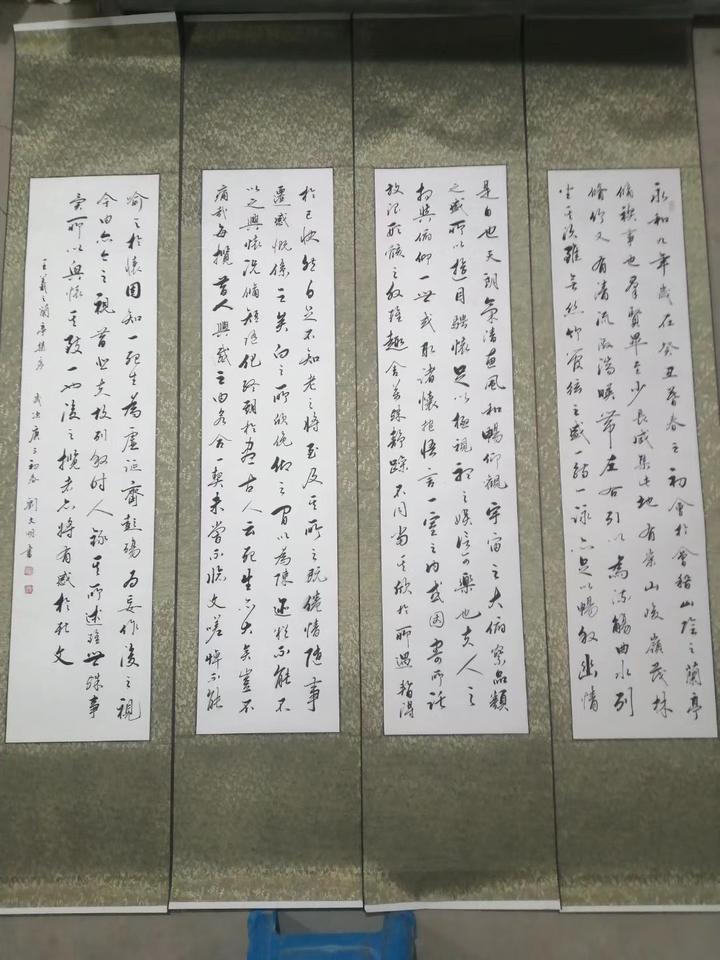 永和九年歲在癸丑暮春之初會於會稽山陰之蘭亭
脩稧事也羣賢畢至少長咸集此地有崇山峻嶺茂林
脩竹又有清流激湍暎帶左右引以為流觴曲水列
坐其次雖無絲竹管絃之盛一觴一詠亦足以暢敘幽情
是日也天朗氣清惠風和暢仰觀宇宙之大俯察品類
之盛所以遊目騁懷足以極視聽之娛信可樂也夫人之
相與俯仰一世或取諸懷抱悟言一室之內或因寄所託
放浪形骸之外雖趣舍萬殊靜躁不同當其欣於所遇暫得
於己快然自足不知老之將至及其所之既倦情隨事
遷感慨係之矣向之所欣俛仰之間以為陳迹猶不能不
以之興懷況脩短隨化終期於盡古人云死生亦大矣豈不
痛哉每攬昔人興感之由若合一契未嘗不臨文嗟悼不能
喻之於懷固知一死生為虛誕齊彭殤為妄作後之視
今由亦今之視昔悲夫故列敘時人錄其所述雖世殊事
異所以興懷其致一也後之攬者亦將有感於斯文
王羲之蘭亭集序 歲次庚子初春 劉文明書